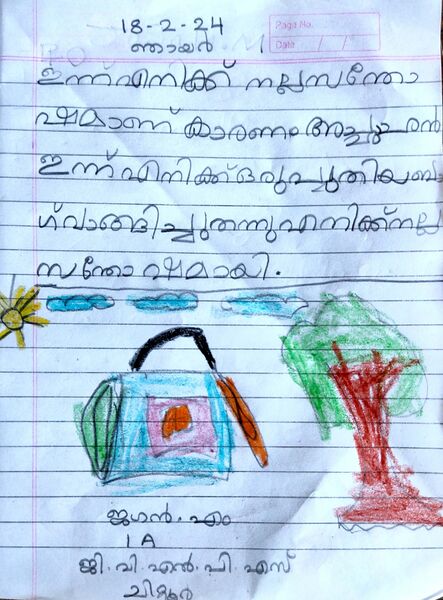 18-2-24
Page No.
Date / /
ഞായർ
ഇന്ന് എനിക്ക് നല്ല സന്തോ
ഷമാണ് കാരണം
ഇന്ന് എനിക്ക് ഒരു പുതിയ ബാ
ഗ് വാങ്ങിച്ചു തന്നു എനിക്ക് നല്ല
സന്തോഷമായി.
ജഗൻ. എം
1 A
ജി. വി. എൻ. പി. എസ്